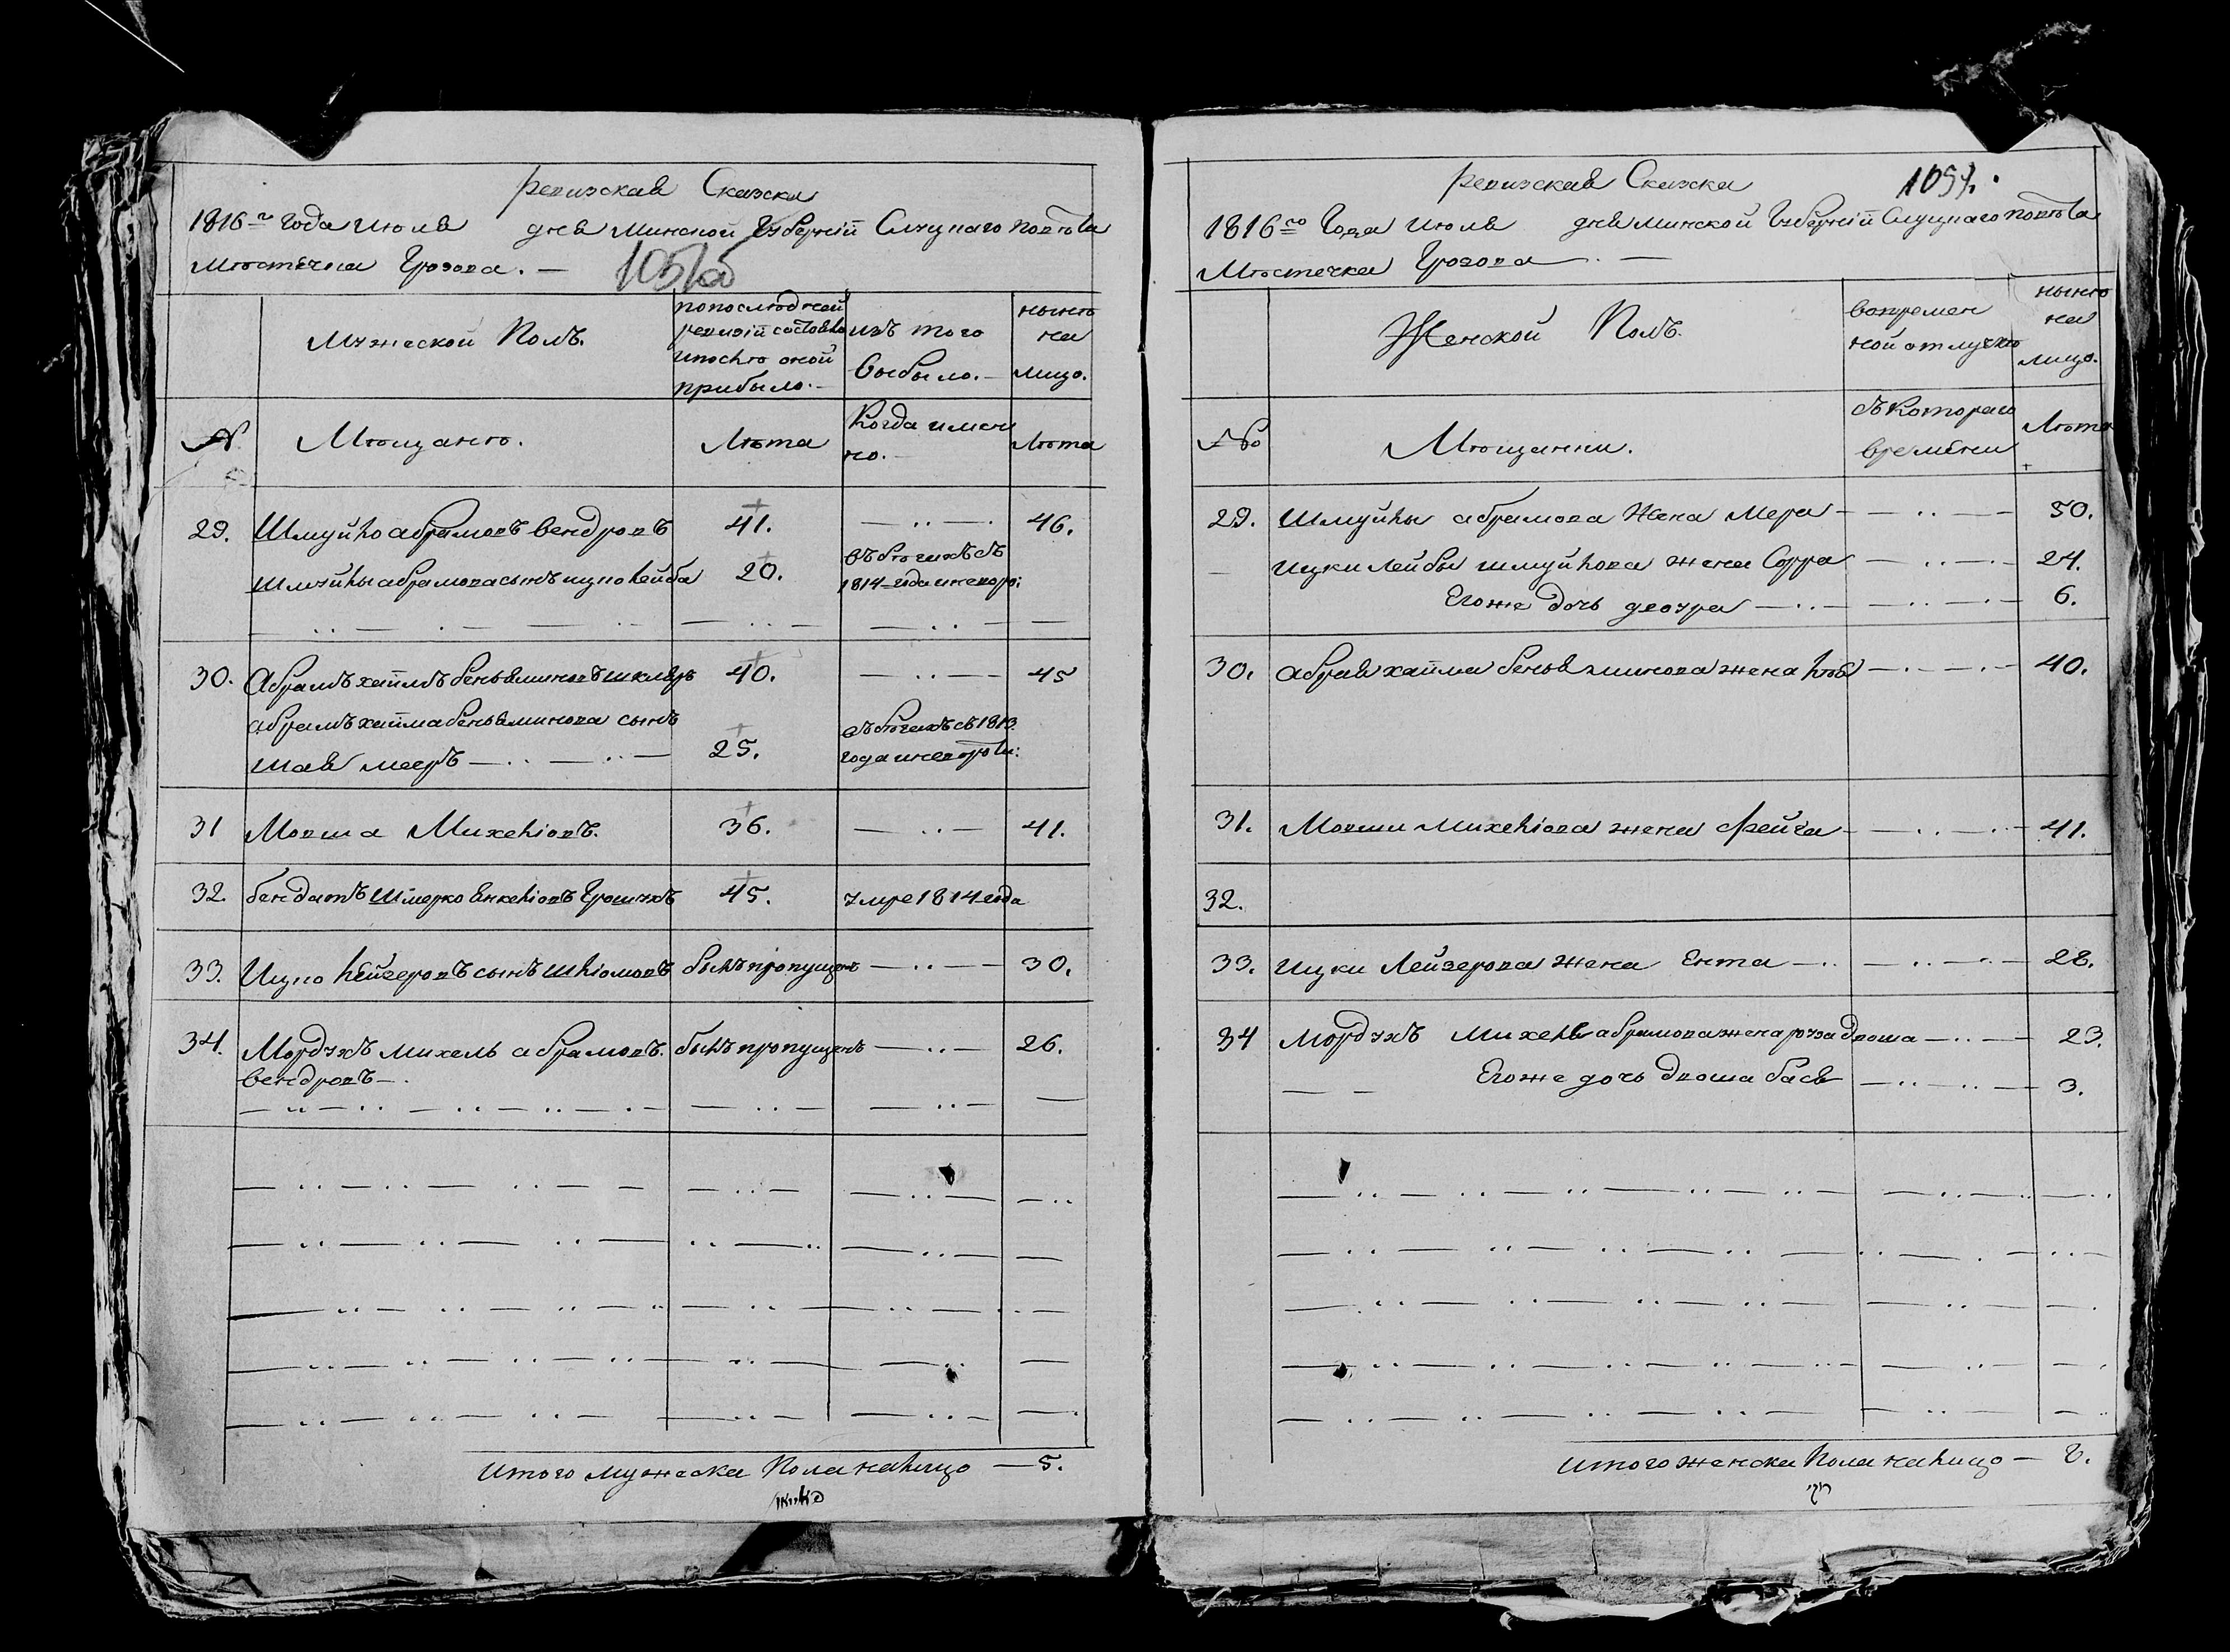 Ревизская Сказска
1816го Года Июля дня Минской Губернiи Слуцкаго Повѣта
Мѣстечка Грозова. —
Мужеской Полъ.
по последней ревизiи состояло и после оной прибыло. —
изъ того выбыло. —
ныне на лицо.
№ Мѣщане. Лѣта Когда имен но. — Лѣта
29. Шмуйло абрамовъ вендровъ 41. — 46.
Шмуйлы абрамова сынъ ицко лейба 20. въ бѣгахъ съ 1814 года
30. Абрамъ хаимъ беньяминовъ шкляръ 40. — 45
абрамъ хаима беньяминова сынъ
шая мееръ — 25. въ бѣгахъ съ 1813 года
31 Мовша Михелiовъ. 36. — 41.
32. бендатъ Шмерко Янкелiовъ 45. умре 1814 года
33. Ицко лейзеровъ сынъ шлiомовъ былъ пропущенъ — 30.
34. Мордухъ михель абрамовъ былъ пропущенъ — 26.
вендровъ — .
Итого мужеска Пола налицо — 5.
Ревизская Сказка
1816го Года Июля дня Минской Губернiи Слуцкаго повѣта
Мѣстечка Грозова . —
Женской Полъ.
во времен ной отлучке
ныне на лицо.
№ Мѣщанки. съ Котораго времени Лѣта
29. Шмуйлы абрамова Жена Мера — 50.
— Ицки Лейбы шмуйлова жена Сорра — 24.
Егоже Дочь двойра — 6.
30. абрая хаима беньяминова жена лея — 40.
31. Мовши Михелiова жена фейга — 41.
32.
33. Ицки Лейзерова жена Ента — 28.
34 Мордухъ Михеля абрамова жена двоша — 23.
Егоже дочь Двоша бася — 3.
Итого женска Пола налицо — 8.